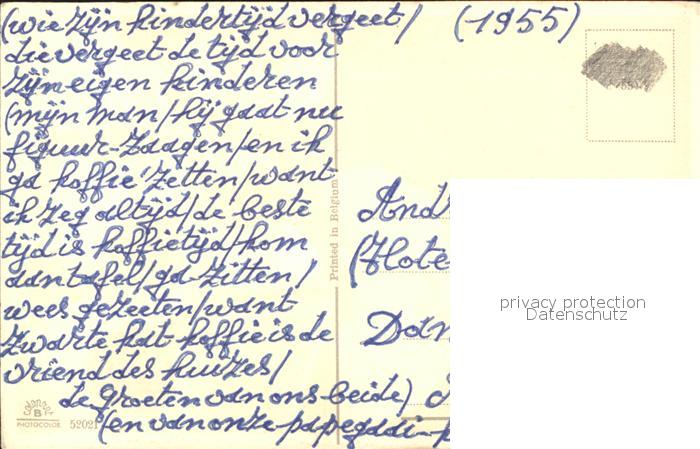 (wie zijn kindertijd vergeet/
die vergeet de tijd voor
zijn eigen kinderen
(mijn man/hij gaat nu
figuur-zaagen/en ik
ga koffie zetten/want
ik zeg altijd/de beste
tijd is koffietijd/kom
aan tafel/ga zitten/
wees gezeeten/want
zwarte kat koffie is de
vriend des huizes/
de groeten van ons beide)
(en van onze papegaai-p
(1955)
Printed in Belgium
And
(Hote
Dan
privacy protection
Datenschutz
B
PHOTOCOLOR
52021